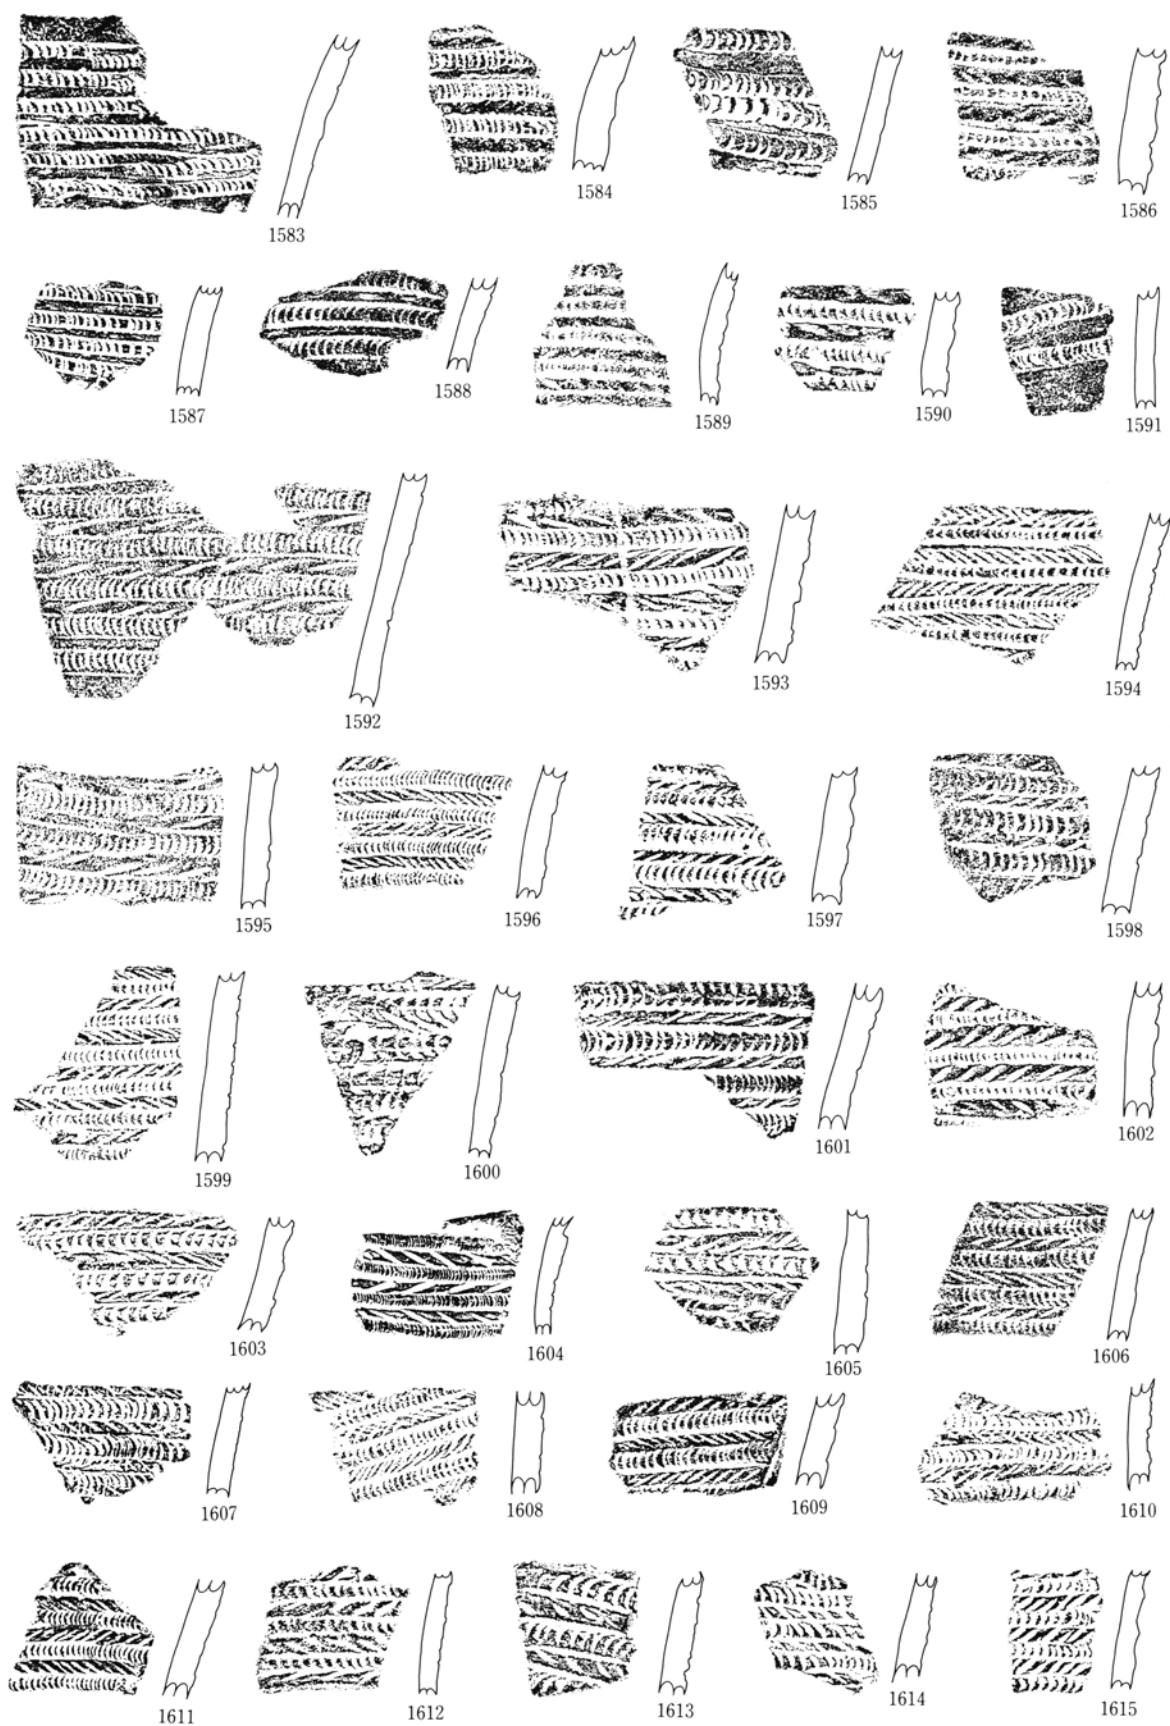 1583
1584
1585
1586
1587
1588
1589
1590
1591
1592
1593
1594
1595
1596
1597
1598
1599
1600
1601
1602
1603
1604
1605
1606
1607
1608
1609
1610
1611
1612
1613
1614
1615